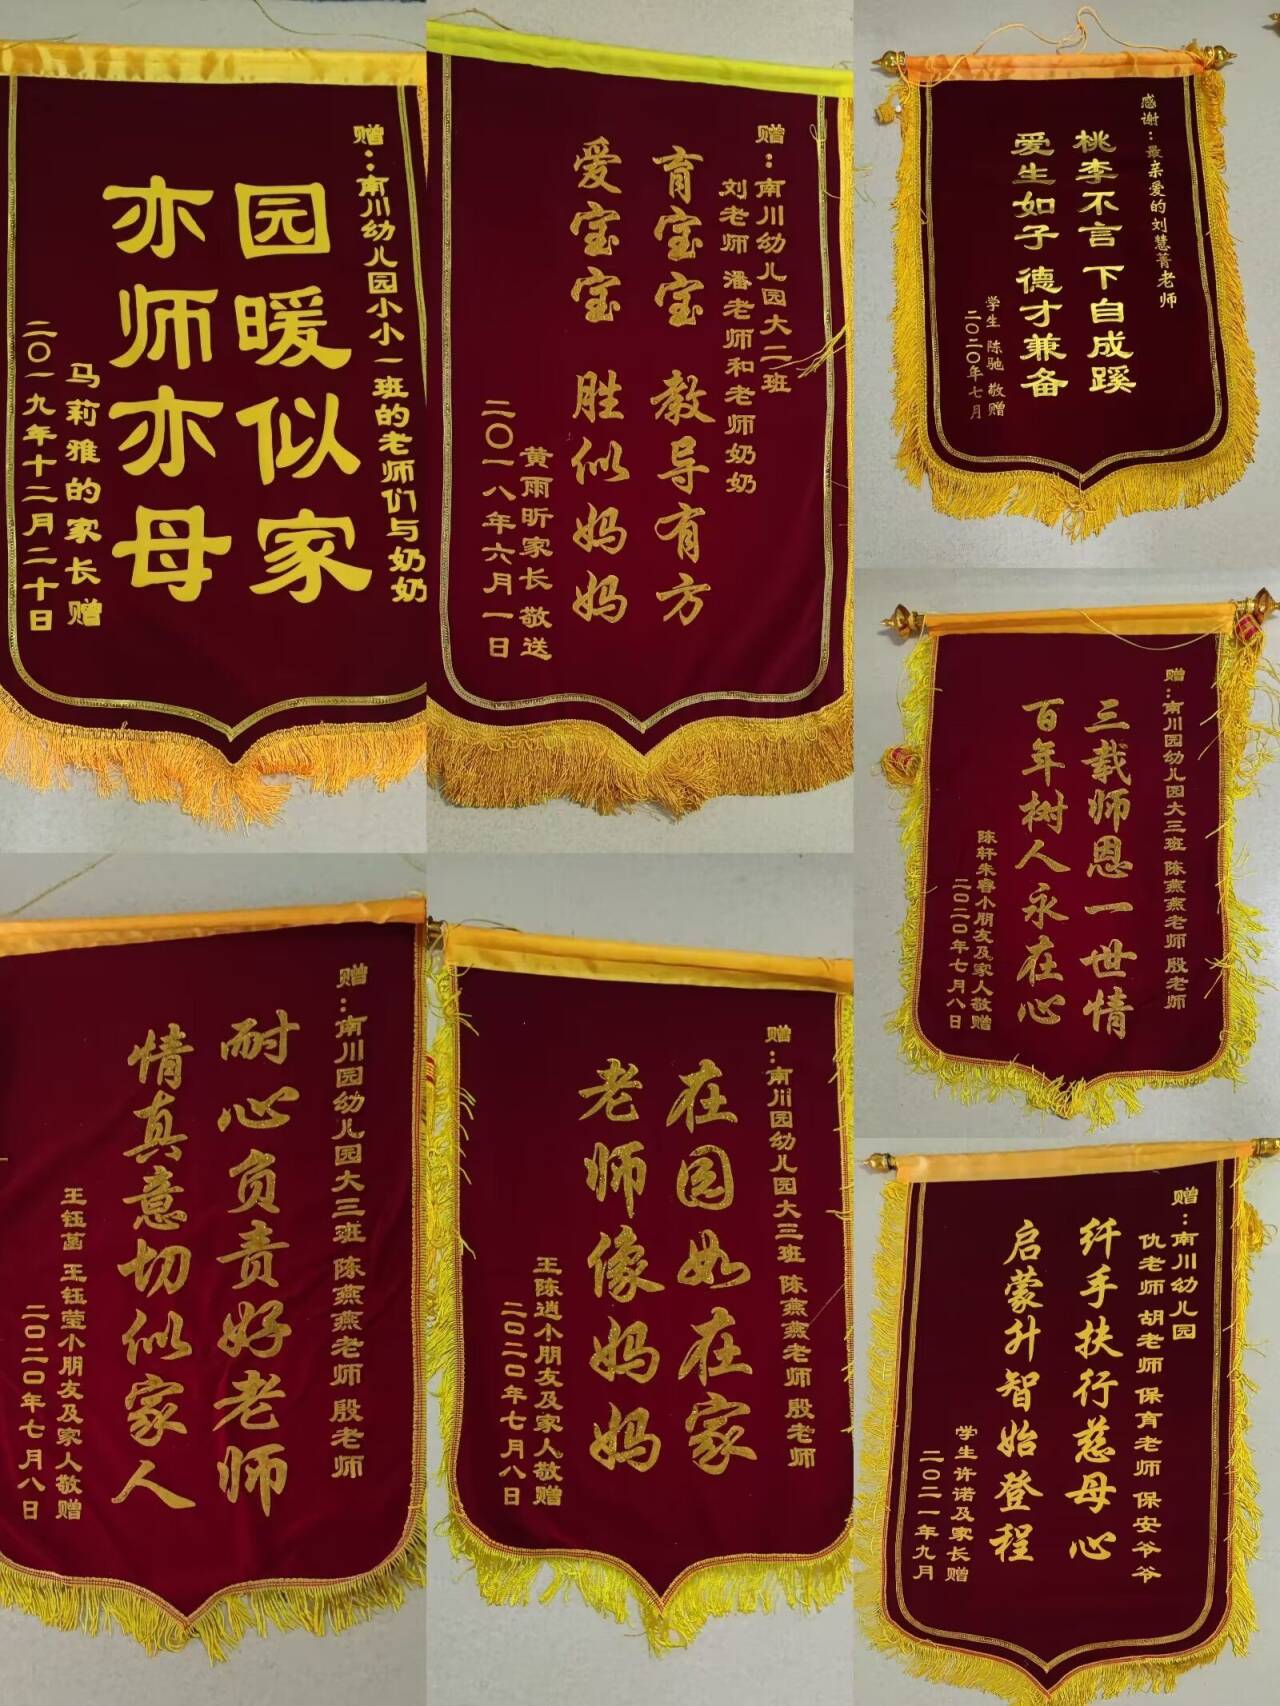 赠：南川幼儿园小小一班的老师们与奶奶
园暖似家
亦师亦母
马莉雅的家长赠
二〇一九年十二月二十日
赠：南川幼儿园大二班
刘老师 潘老师和老师奶奶
育宝宝 教导有方
爱宝宝 胜似妈妈
黄雨昕家长敬送
二〇一八年六月一日
感谢：最亲爱的刘慧菁老师
桃李不言 下自成蹊
爱生如子 德才兼备
学生 陈驰 敬赠
二〇二〇年七月
赠：南川园幼儿园大三班 陈燕燕老师 殷老师
三载师恩一世情
百年树人永在心
陈轩朱睿小朋友及家人敬赠
二〇二〇年七月八日
赠：南川园幼儿园大三班 陈燕燕老师 殷老师
耐心负责好老师
情真意切似家人
王钰菡 王钰莹小朋友及家人敬赠
二〇二〇年七月八日
赠：南川园幼儿园大三班 陈燕燕老师 殷老师
在园如在家
老师像妈妈
王陈逍小朋友及家人敬赠
二〇二〇年七月八日
赠：南川幼儿园
仇老师 胡老师 保育老师 保安爷爷
纤手扶行慈母心
启蒙升智始登程
学生许诺及家长赠
二〇二一年九月